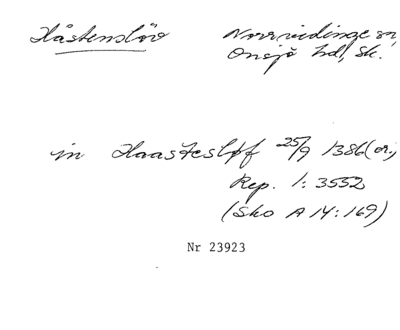 Håstenslöv Norrvidinge sn,
Onsjö hd, Sk.
in Haasteslöff 25/9 1386 (or,
Rep. 1: 3552
(Sko A 14:169)
Nr 23923